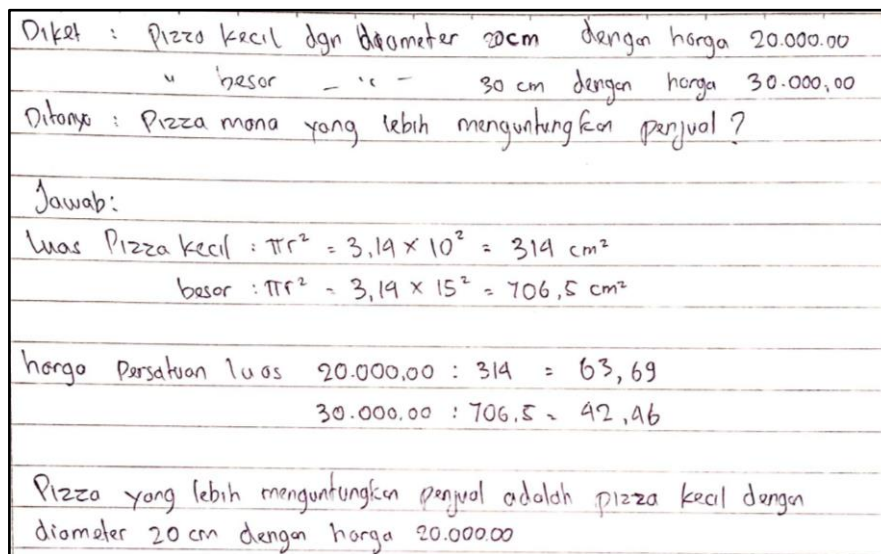 Diket : Pizza kecil dgn diameter 20cm dengan harga 20.000.00
" besar - " - 30 cm dengan harga 30.000,00
Ditanya : Pizza mana yang lebih menguntungkan penjual ?
Jawab:
Luas Pizza kecil : πr² = 3,14 × 10² = 314 cm²
besar : πr² = 3,14 × 15² = 706,5 cm²
harga Persatuan luas 20.000,00 : 314 = 63,69
30.000.00 : 706,5 = 42,46
Pizza yang lebih menguntungkan penjual adalah pizza kecil dengan
diameter 20 cm dengan harga 20.000.00